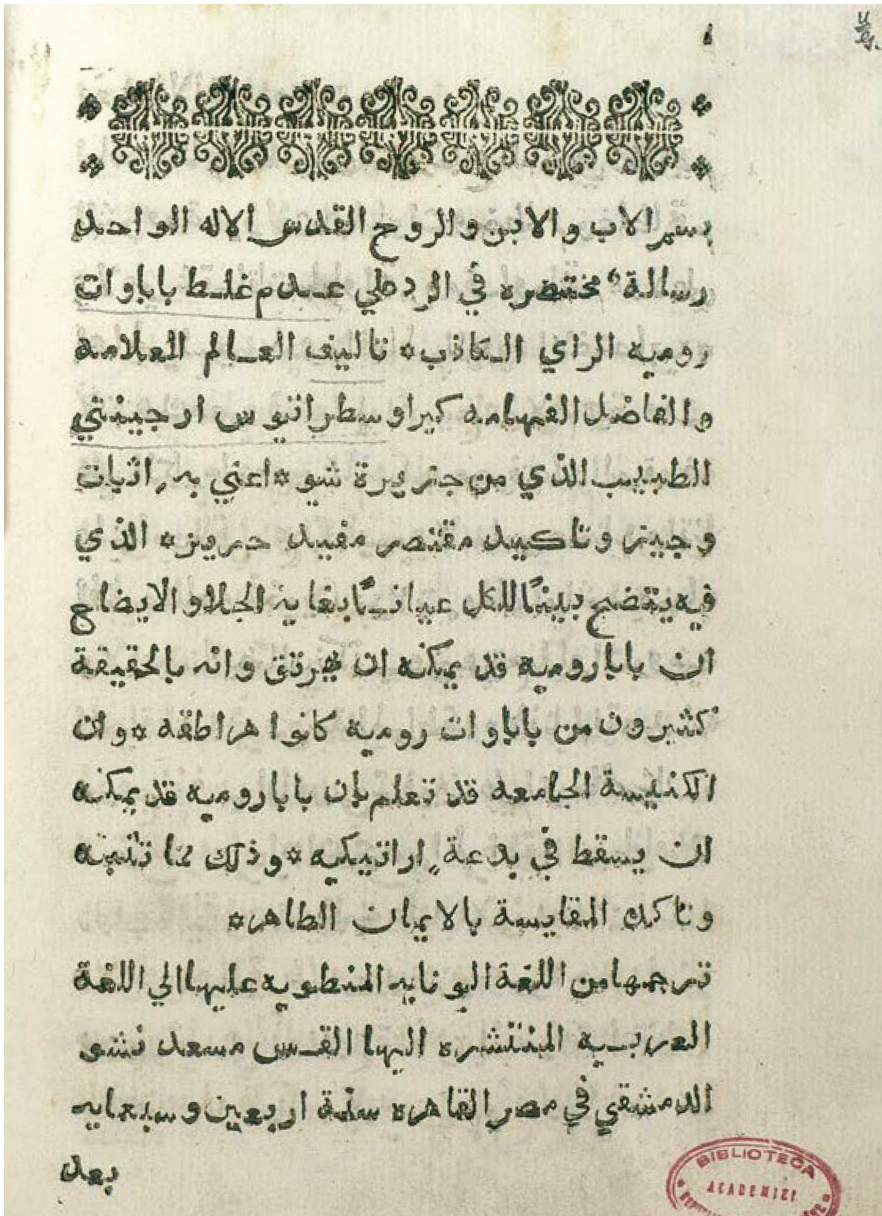 بسم الاب والابن والروح القدس الاله الواحد
رسالة مختصره في الرد علي عدم غلط باباوات
روميه الراي الكاذب* تاليف العالم العلامه
والفاضل الفهامه كيراوسطراتيوس ارجيينتي
الطبيب الذي من جزيرة شيو*اعني به اثبات
وجيز وتاكييد مقتصر مفيد حريز* الذي
فيه يتضح بينًا للكل عيانًا بغاية الجلا والايضاح
ان بابا روميه قد يمكنه ان يهرتق وانه بالحقيقة
كثيرون من باباوات روميه كانوا هراطقه *وان
الكنيسة الجامعه قد تعلم بان بابا روميه قد يمكنه
ان يسقط في بدعةٍ اراتيكيه *وذلك مما تثبته
وتاكده المقايسة بالايمان الطاهر*
ترجمها من اللغة اليونانيه المنطويه عليها الي اللغة
العربيه المنتشره اليها القس مسعد نشو
الدمشقي في مصر القاهره سنة اربعين وسبعمايه
بعد
BIBLIOTECA
ACADEMIEI